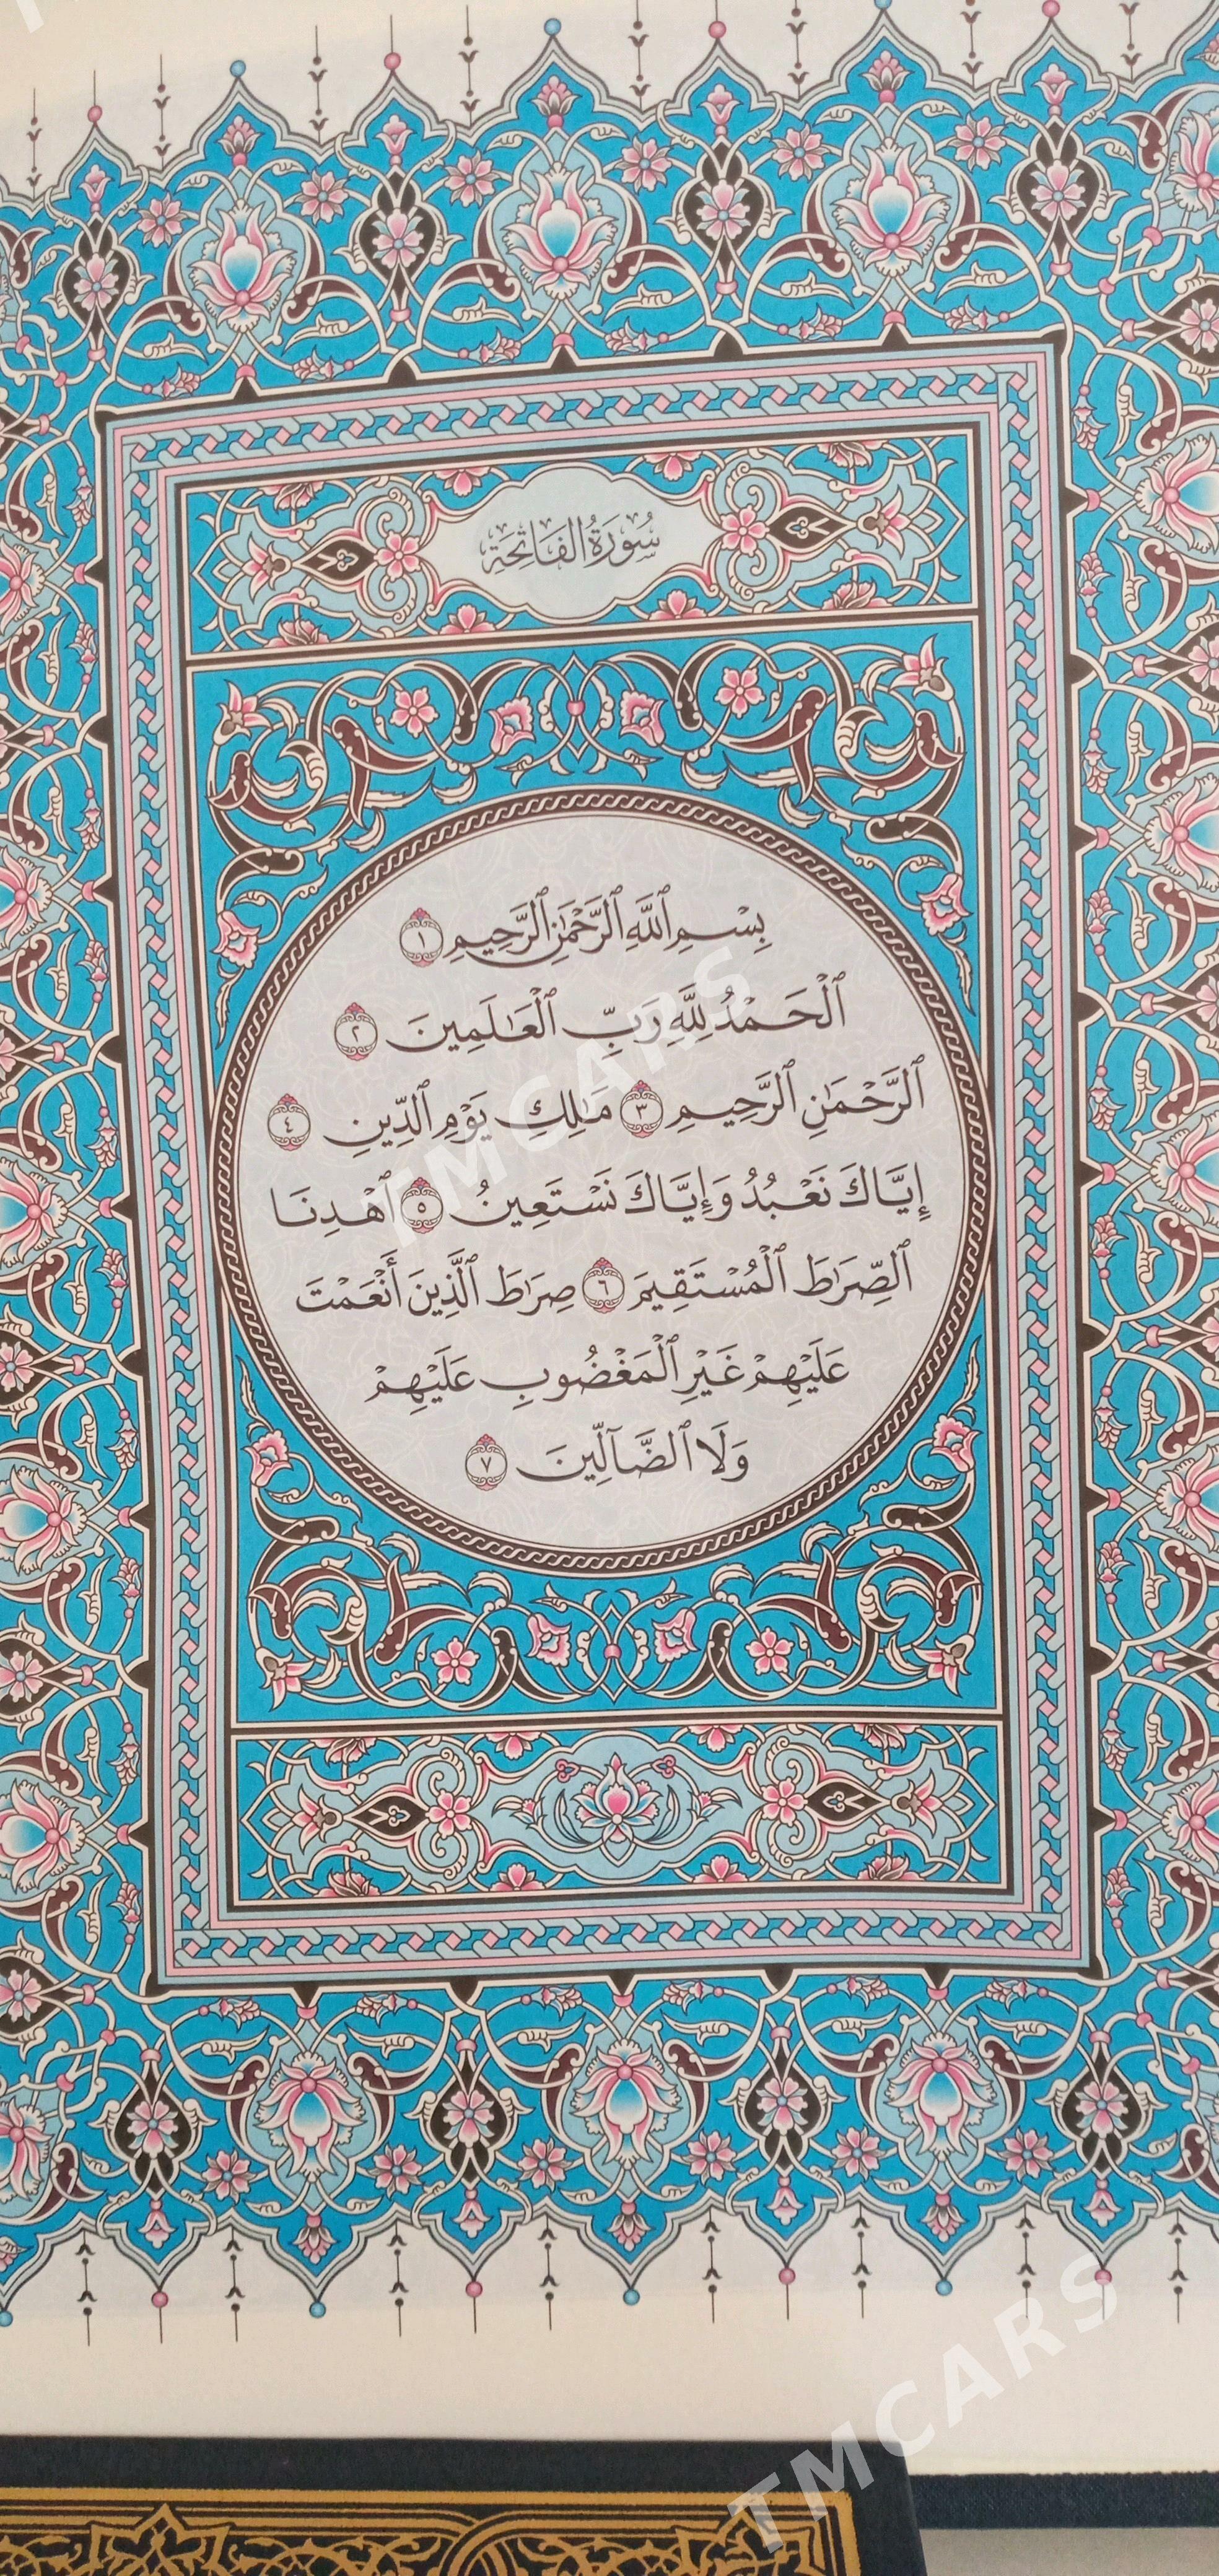 سُورَةُ الفَاتِحَةِ
بِسْمِ ٱللَّهِ ٱلرَّحْمَٰنِ ٱلرَّحِيمِ ١
ٱلْحَمْدُ لِلَّهِ رَبِّ ٱلْعَٰلَمِينَ ٢
ٱلرَّحْمَٰنِ ٱلرَّحِيمِ ٣ مَٰلِكِ يَوْمِ ٱلدِّينِ ٤
إِيَّاكَ نَعْبُدُ وَإِيَّاكَ نَسْتَعِينُ ٥ ٱهْدِنَا
ٱلصِّرَٰطَ ٱلْمُسْتَقِيمَ ٦ صِرَٰطَ ٱلَّذِينَ أَنْعَمْتَ
عَلَيْهِمْ غَيْرِ ٱلْمَغْضُوبِ عَلَيْهِمْ
وَلَا ٱلضَّآلِّينَ ٧
TMCARS
TMCARS